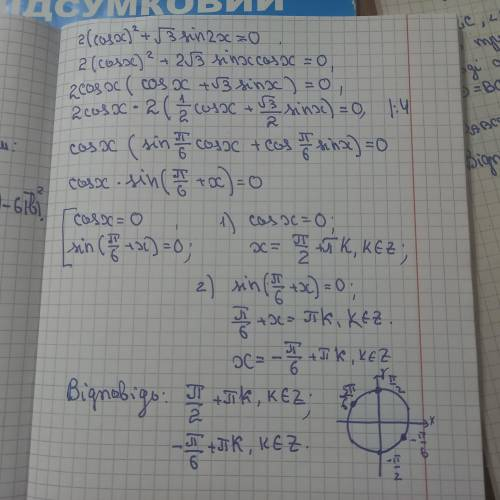 ПІДСУМКОВИЙ
2(cosx)² + √3 sin2x = 0
2(cosx)² + 2√3 sinxcosx = 0,
2cosx(cosx + √3 sinx) = 0,
2cosx · 2(1/2 cosx + √3/2 sinx) = 0, |:4
cosx (sin π/6 cosx + cos π/6 sinx) = 0
cosx · sin(π/6 + x) = 0
[cosx = 0
sin(π/6 + x) = 0;
1) cosx = 0;
x = π/2 + πk, k∈Z;
2) sin(π/6 + x) = 0;
π/6 + x = πk, k∈Z.
x = -π/6 + πk, k∈Z
Відповідь: π/2 + πk, k∈Z;
-π/6 + πk, k∈Z.
π/2
x
-π/6
-π/2
-6|b|²